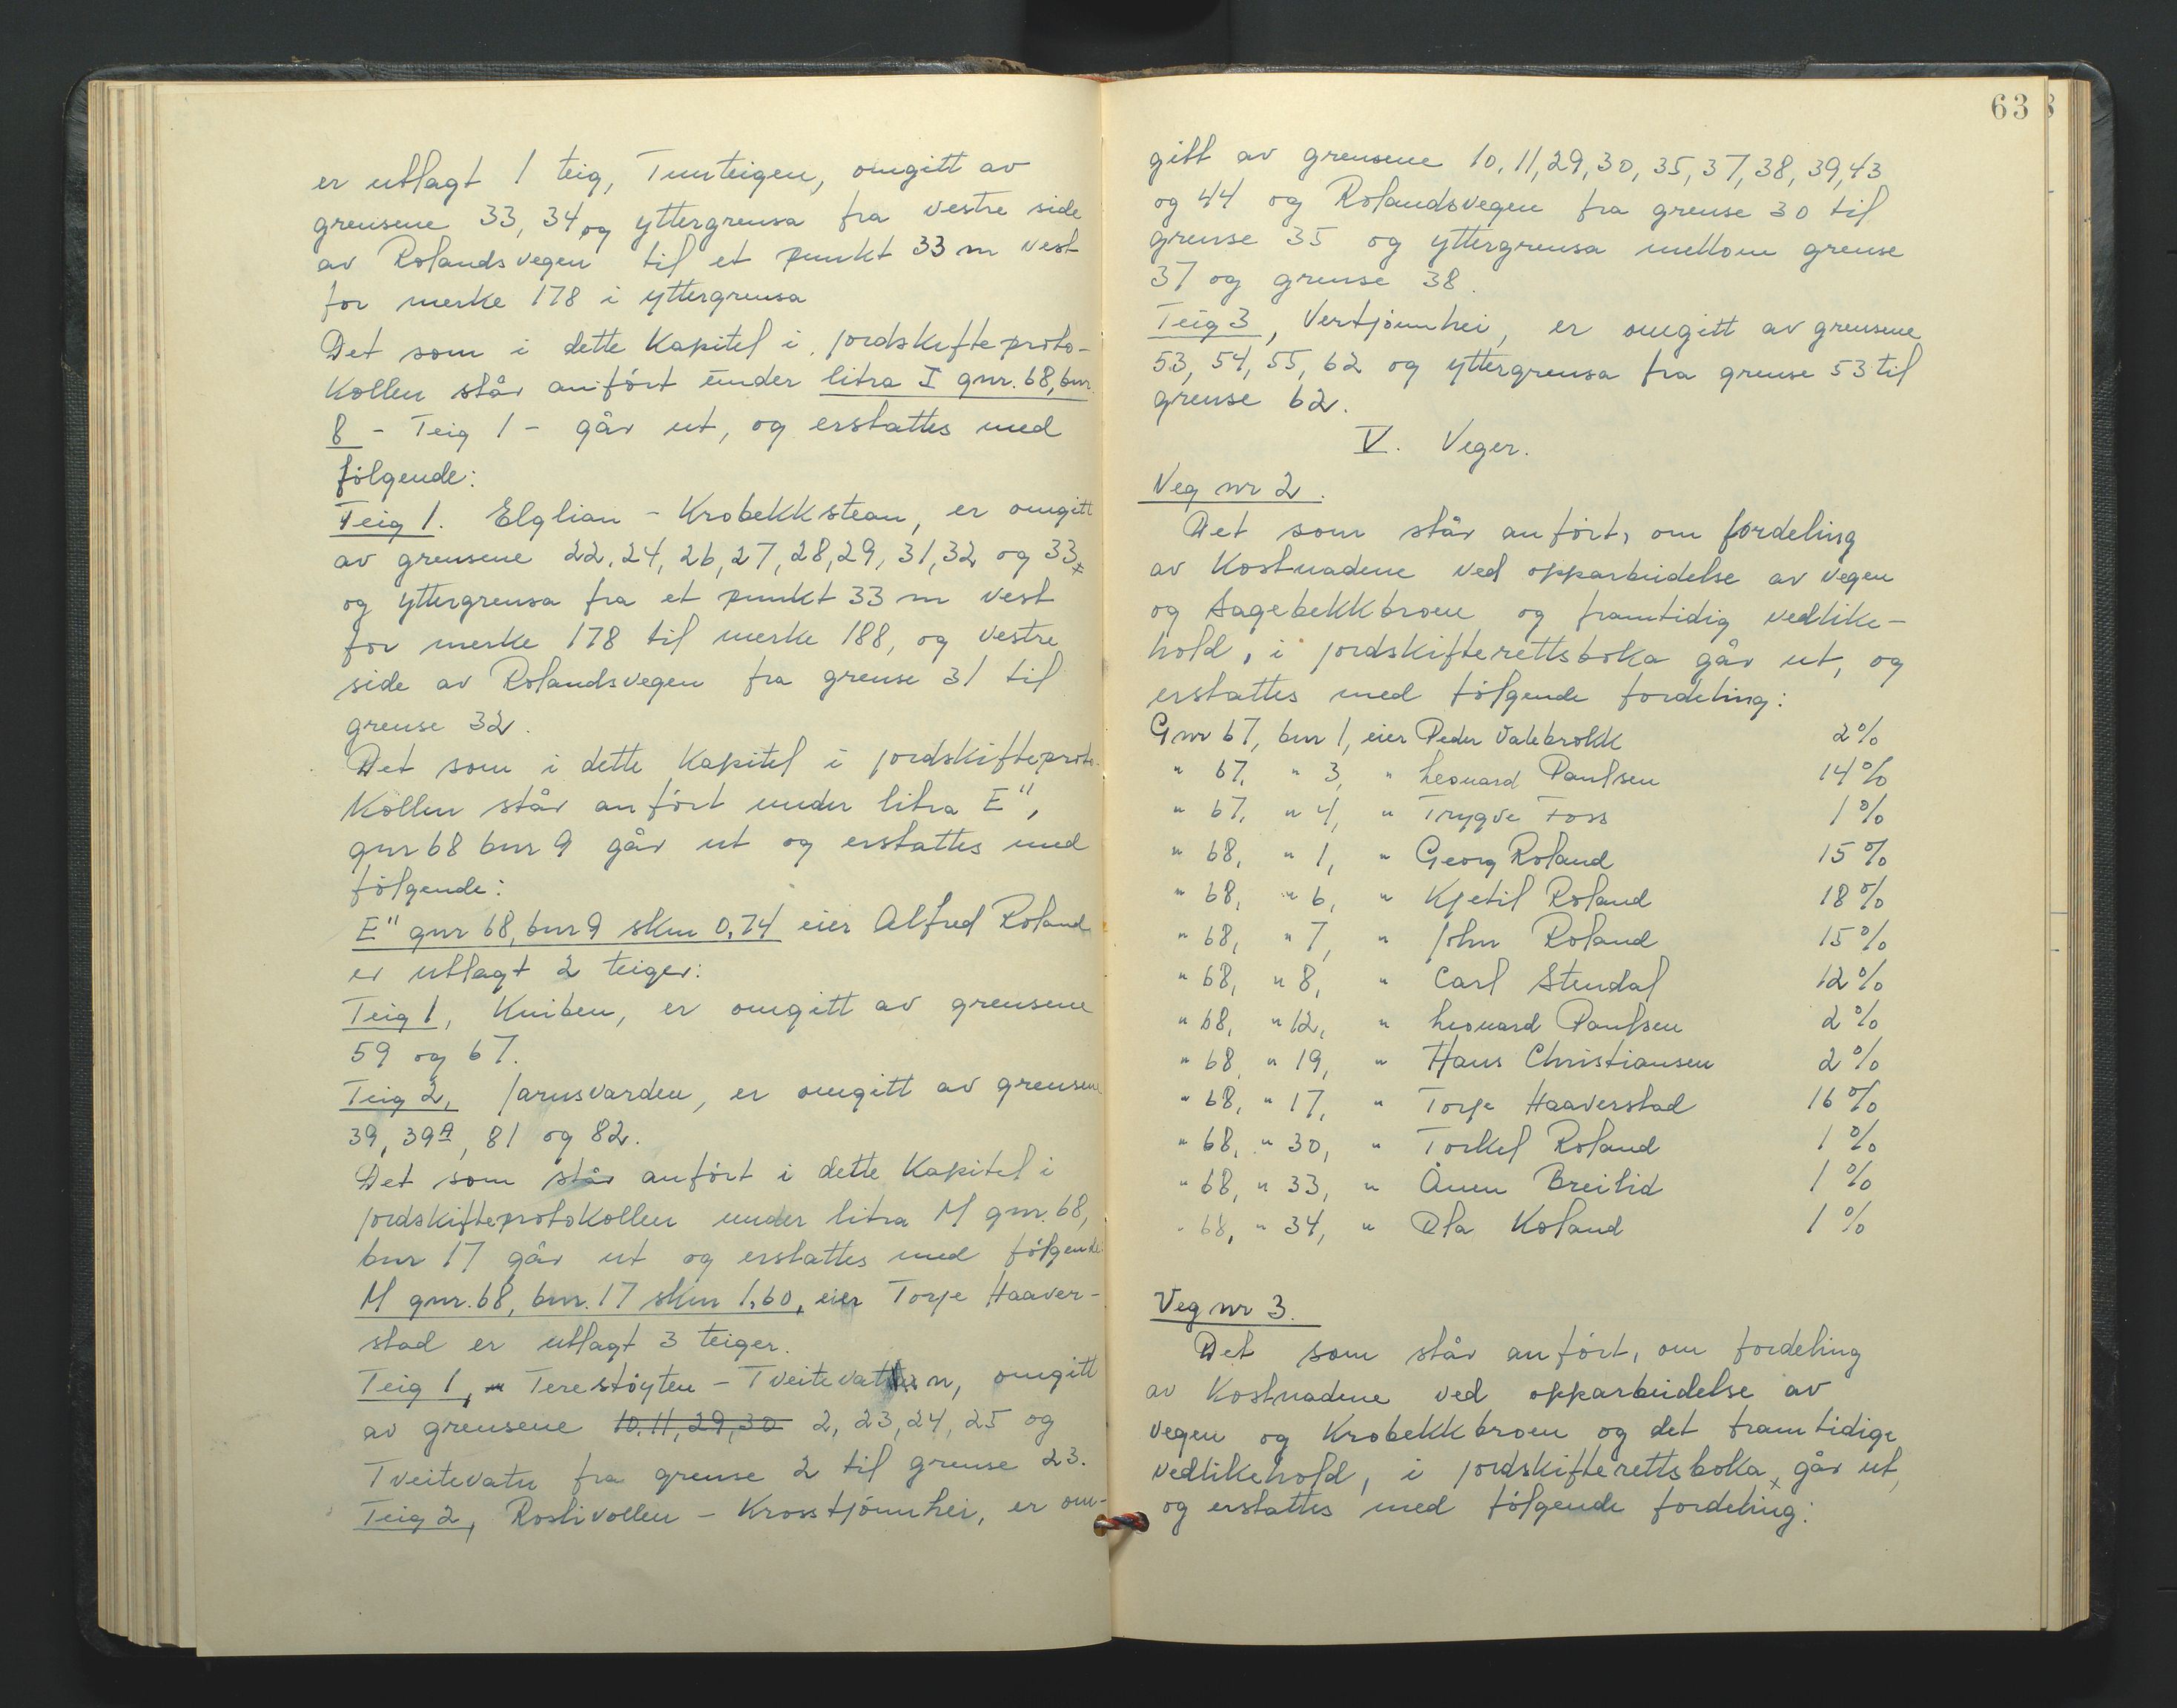 er utlagt 1 teig, Tunteigen, omgitt av
grensene 33, 34 og yttergrensa fra vestre side
av Rolandsvegen til et punkt 33 m vest
for merke 178 i yttergrensa
Det som i dette Kapitel i jordskifteproto-
kollen står anført under litra I gnr. 68, bnr.
8 - Teig 1 - går ut, og erstattes med
følgende:
Teig 1. Elglian - Krobekkstean, er omgitt
av grensene 22, 24, 26, 27, 28, 29, 31, 32 og 33
og yttergrensa fra et punkt 33 m vest
for merke 178 til merke 188, og vestre
side av Rolandsvegen fra grense 31 til
grense 32.
Det som i dette Kapitel i jordskifteproto-
kollen står anført under litra E",
gnr 68 bnr 9 går ut og erstattes med
følgende:
E" gnr 68, bnr 9 skm 0,74 eier Alfred Roland
er utlagt 2 teiger:
Teig 1, Kniben, er omgitt av grensene
59 og 67.
Teig 2, Jarusvarden, er omgitt av grensene
39, 39A, 81 og 82.
Det som står anført i dette Kapitel i
jordskifteprotokollen under litra M gnr. 68,
bnr 17 går ut og erstattes med følgende:
M gnr. 68, bnr. 17 skm 1,60, eier Torje Haaver-
stad er utlagt 3 teiger.
Teig 1, Terestöyten - Tveitevatn, omgitt
av grensene 10, 11, 29, 30 2, 23, 24, 25 og
Tveitevatn fra grense 2 til grense 23.
Teig 2, Roslivollen - Krosstjönnhei, er om-
63
gitt av grensene 10, 11, 29, 30, 35, 37, 38, 39, 43
og 44 og Rolandsvegen fra grense 30 til
grense 35 og yttergrensa mellom grense
37 og grense 38.
Teig 3, Vertjönnhei, er omgitt av grensene
53, 54, 55, 62 og yttergrensa fra grense 53 til
grense 62.
V. Veger.
Veg nr 2.
Det som står anført, om fordeling
av Kostnadene ved opparbeidelse av vegen
og Sagebekkbroen og framtidig vedlike-
hold, i jordskifterettsboka går ut, og
erstattes med følgende fordeling:
Gnr 67, bnr 1, eier Peder Valebrokk 2%
" 67, " 3, " Leonard Paulsen 14%
" 67, " 4, " Trygve Foss 1%
" 68, " 1, " Georg Roland 15%
" 68, " 6, " Kjetil Roland 18%
" 68, " 7, " John Roland 15%
" 68, " 8, " Carl Stendal 12%
" 68, " 12, " Leonard Paulsen 2%
" 68, " 19, " Hans Christiansen 2%
" 68, " 17, " Torje Haaverstad 16%
" 68, " 30, " Torkel Roland 1%
" 68, " 33, " Ånen Breilid 1%
" 68, " 34, " Ola Roland 1%
Veg nr 3.
Det som står anført, om fordeling
av Kostnadene ved opparbeidelse av
vegen og Krobekkbroen og det framtidige
vedlikehold, i jordskifterettsboka, går ut,
og erstattes med følgende fordeling: